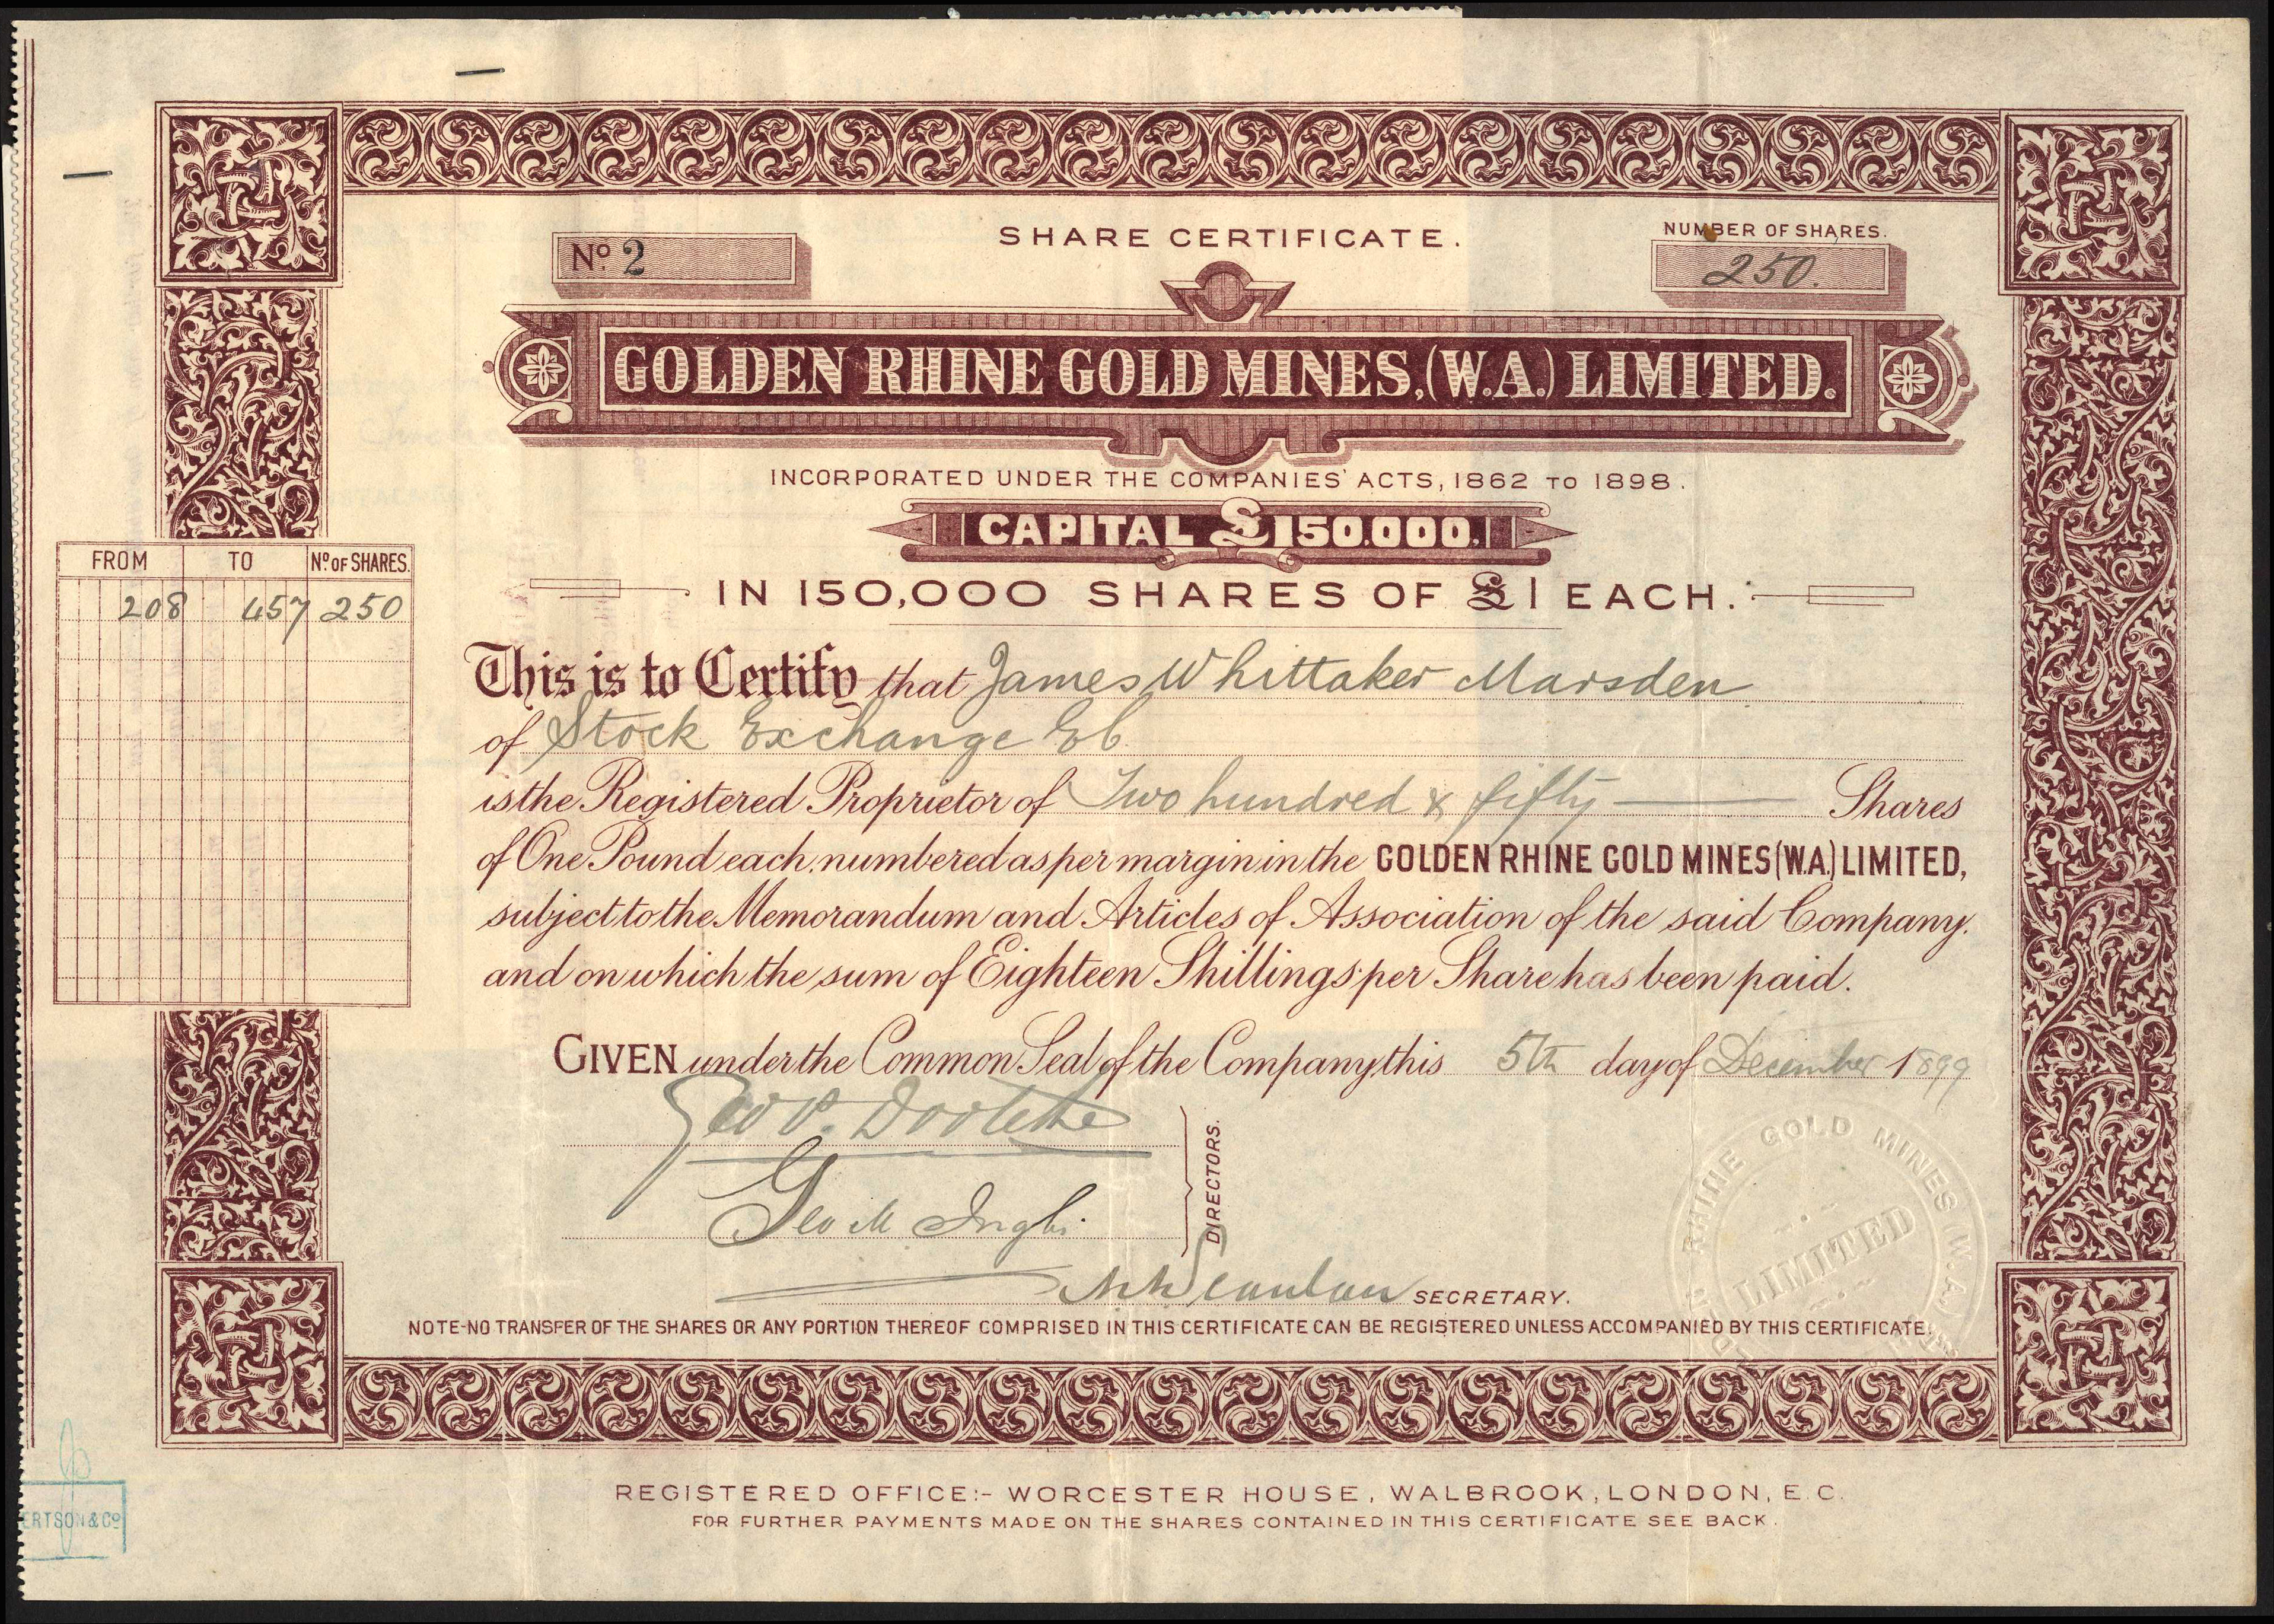 SHARE CERTIFICATE.
Nº 2
NUMBER OF SHARES.
250.
GOLDEN RHINE GOLD MINES, (W.A.) LIMITED.
INCORPORATED UNDER THE COMPANIES' ACTS, 1862 TO 1898.
CAPITAL £150.000.
IN 150,000 SHARES OF £1 EACH.
FROM TO Nº OF SHARES.
208 457 250
This is to Certify that James Whittaker Marsden
of Stock Exchange EC
is the Registered Proprietor of Two hundred & fifty Shares
of One Pound each, numbered as per margin in the GOLDEN RHINE GOLD MINES (W.A.) LIMITED,
subject to the Memorandum and Articles of Association of the said Company.
and on which the sum of Eighteen Shillings per Share has been paid.
GIVEN under the Common Seal of the Company this 5th day of December 1899
Geo P. Doolette
Geo M Inglis
DIRECTORS.
Scanlan SECRETARY.
RHINE GOLD MINES (W.A.)
LIMITED
NOTE-NO TRANSFER OF THE SHARES OR ANY PORTION THEREOF COMPRISED IN THIS CERTIFICATE CAN BE REGISTERED UNLESS ACCOMPANIED BY THIS CERTIFICATE.
REGISTERED OFFICE:- WORCESTER HOUSE, WALBROOK, LONDON, E.C.
FOR FURTHER PAYMENTS MADE ON THE SHARES CONTAINED IN THIS CERTIFICATE SEE BACK.
ERTSON & Cº